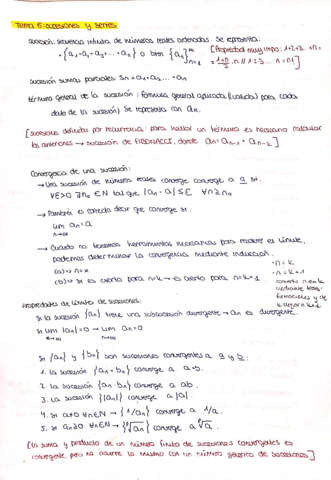 Tema 6: sucesiones y series
sucesión: secuencia infinita de números reales ordenados. Se representa:
· {a₁, a₂, a₃, ... aₙ} o bien {aₙ}ₙ₌₁^∞
[Propiedad muy impo: 1+2+3...n =
= (1+n)/2 · n // 1·2·3 ... ·n = n!]
sucesión sumas parciales: Sn = a₁ + a₂ ... + aₙ
término general de la sucesión: fórmula general aplicada (valida) para cada
dato de la sucesión) Se representa con aₙ.
[sucesiones definidas por recurrencia, para hallar un término es necesario calcular
los anteriores → sucesión de FIBONACCI, donde aₙ = aₙ₋₁ + aₙ₋₂]
Convergencia de una sucesión:
→ Una sucesión de números reales converge converge a a si:
∀ε>0 ∃n₀ ∈ N tal que |aₙ - a| ≤ ε ∀n ≥ n₀
→ También es correcto decir que converge si:
lim aₙ = a
n→∞
→ Cuando no tenemos herramientas necesarias para resolver el límite,
podemos determinar la convergencia mediante inducción.
(a) → n = x
(b) → si es cierto para n=k → es cierto para n=k+1
· n = k
· n = k+1
convierto n en k
mediante trans-
formaciones y de
k llego a k+1
Propiedades de límites de sucesiones:
· Si la sucesión {aₙ} tiene una subsucesión divergente → aₙ es divergente.
· si lim |aₙ| = 0 → lim aₙ = 0
n→∞ n→∞
· Si {aₙ} y {bₙ} son sucesiones convergentes a a y b:
1. la sucesión {aₙ + bₙ} converge a a+b.
2. la sucesión {aₙ · bₙ} converge a ab.
3. la sucesión {|aₙ|} converge a |a|.
4. si a≠0 ∀n∈N → {1/aₙ} converge a 1/a.
5. si aₙ≥0 ∀n∈N → {√aₙ} converge a √a.
[la suma y producto de un número finito de sucesiones convergentes es
convergente, pero no ocurre lo mismo con un número genérico de sucesiones]